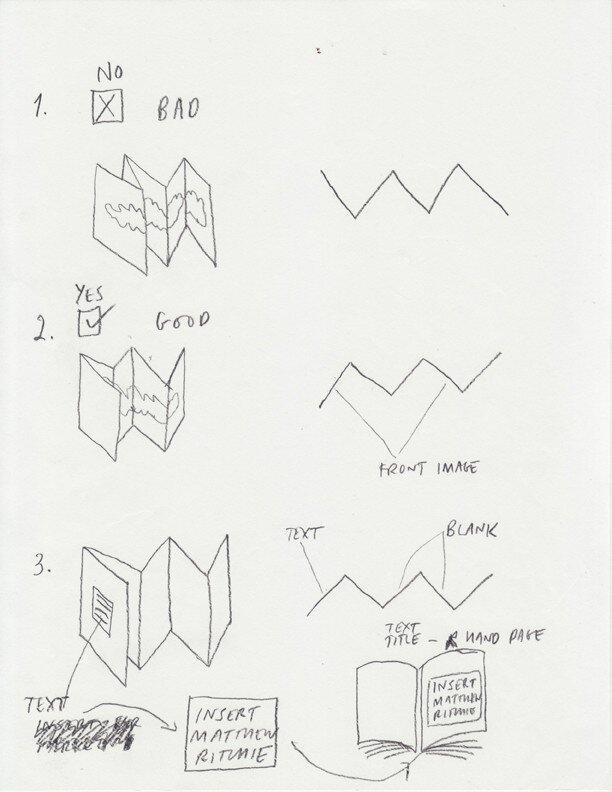 NO
1. BAD
YES
2. GOOD
FRONT IMAGE
3.
TEXT
BLANK
TEXT
TITLE - R HAND PAGE
INSERT
MATTHEW
RITCHIE
TEXT
INSERT
MATTHEW
RITCHIE